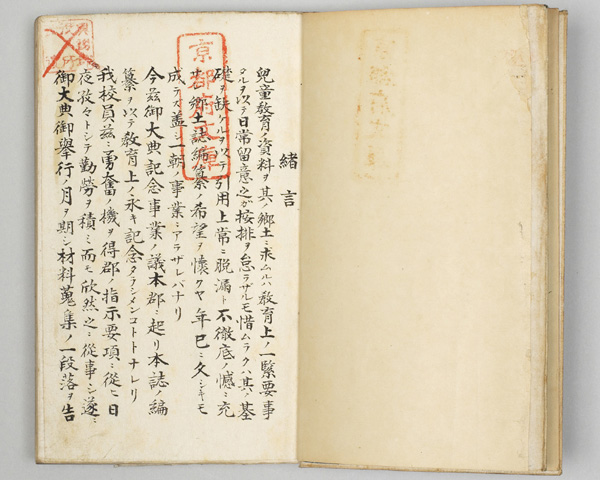 緒言
兒童敎育ノ資料ヲ其ノ鄕土ニ求ムルハ敎育上ノ一緊要事
タルヲ以テ日常留意之ガ按排ヲ怠ラザルモ惜ムラクハ其ノ基
礎ヲ缺クルヲ以テ引用上常ニ脫漏ト不徹底ノ憾ニ充
鄕土誌編纂ノ希望ヲ懷クヤ年已ニ久シキモ
成ラズ蓋シ一朝ノ事業ニアラザレバナリ
今玆御大典記念事業ノ議本郡ニ起リ本誌ノ編
纂ヲ以テ敎育上ノ永キ記念タラシメンコトトナレリ
我校員玆ニ勇奮ノ機ヲ得郡ノ指示要項ニ從ヒ日
夜孜々トシテ勤勞ヲ積ミ而モ欣然之ニ從事シ遂ニ
御大典御擧行ノ月ヲ期シ材料蒐集ノ一段落ヲ告
京都府